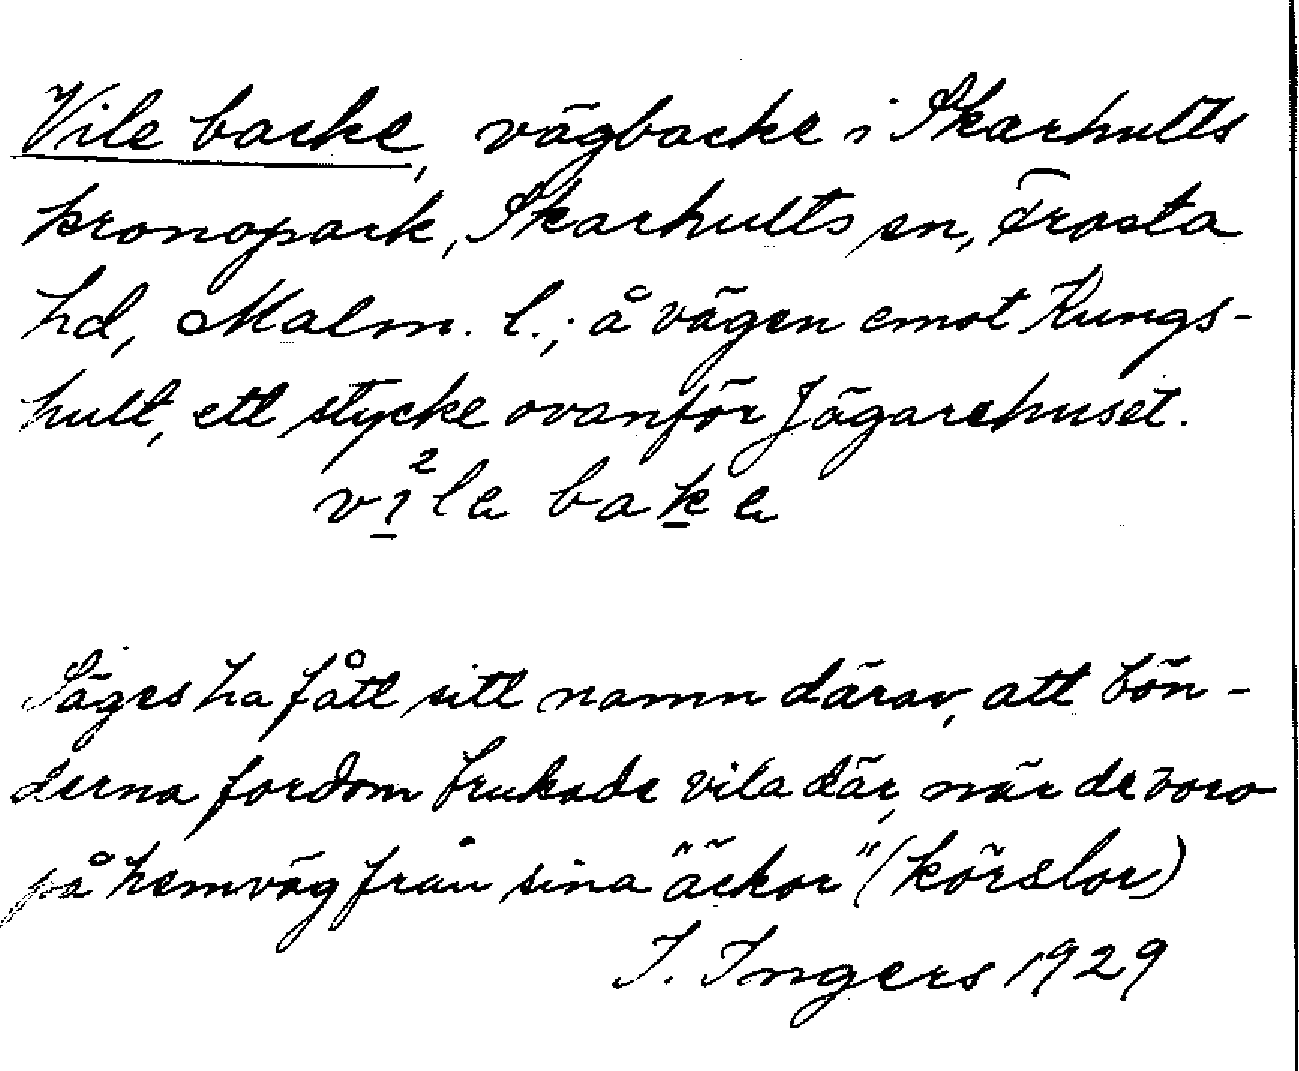 Vile backe, vägbacke i Skarhults
kronopark, Skarhults sn, Frosta
hd, Malm. l.; å vägen emot Kungs-
hult, ett stycke ovanför Jägarehuset.
vi²la baka
Säges ha fått sitt namn därav, att bön-
derna fordom brukade vila där, när de voro
på hemväg från sina "äckor" (körslor)
I. Ingers 1929